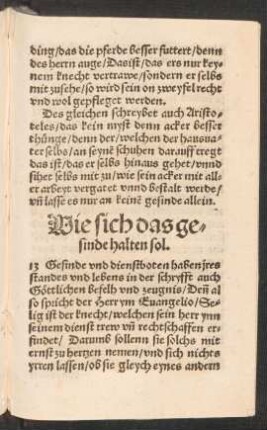 ding/das die pferde besser futtert/denn
des herrn auge/Das ist/das ers nur key-
nem knecht vertrawe/sondern er selbs
mit zusehe/so wird sein on zweyfel recht
vnd wol gepfleget werden.
Des gleichen schreybet auch Aristo-
teles/das kein myst denn acker besser
thünge/denn der/welchen der hausua-
ter selbs/an seynē schuhen darauff tregt
das ist/das er selbs hinaus gehet/vnnd
sihet selbs mit zu/wie sein acker mit all-
er arbeyt vergatet vnnd bestalt werde/
vñ lasse es nur an keinē gesinde allein.
Wie sich das ge-
sinde halten sol.
13 Gesinde vnd dienstboten haben jres
standes vnd lebens in der schryfft auch
Göttlichen befelh vnd zeugnis/Deñ al
so spricht der Herr ym Euangelio/Se-
lig ist der knecht/welchen sein herr ynn
seinem dienst trew vñ rechtschaffen er-
findet/Darumb sollenn sie solchs mit
ernst zu hertzen nemen/vnd sich nichts
yrren lassen/ob sie gleych eynes andern